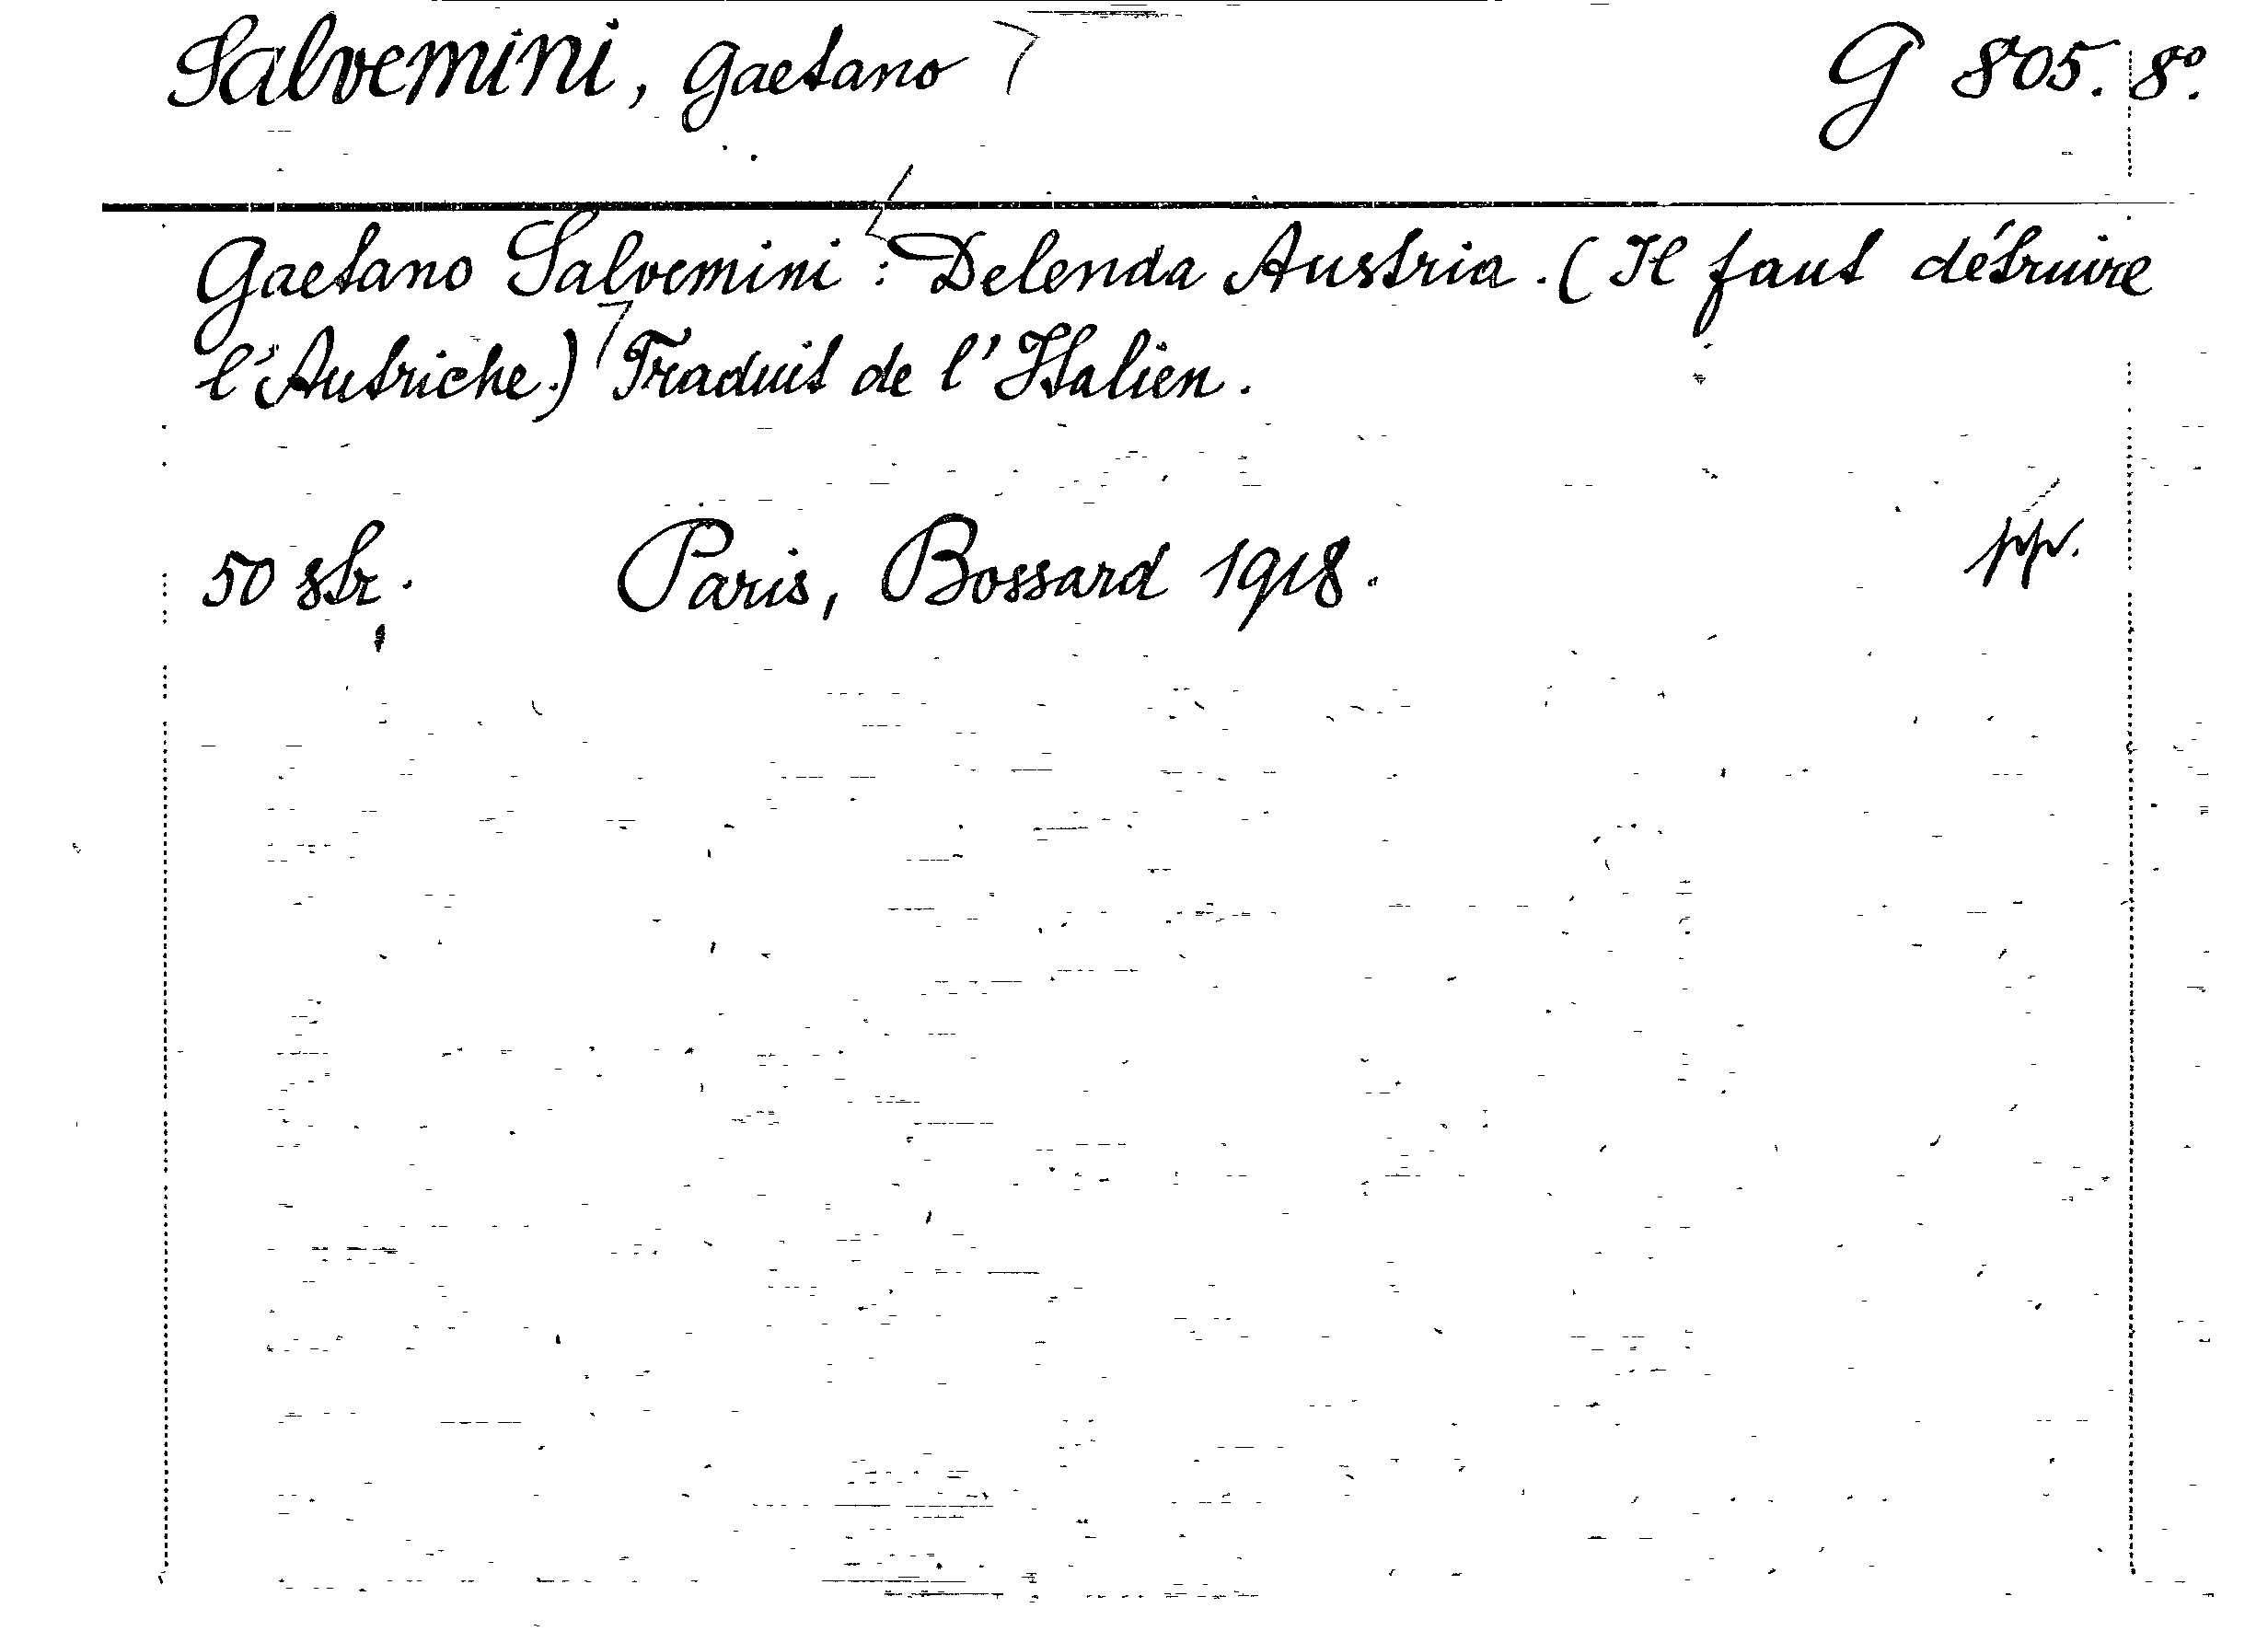 Salvemini, Gaetano G 805. 8º.
Gaetano Salvemini: Delenda Austria. (Il faut détruire
l'Autriche.) Traduit de l'Italien.
50 str. Paris, Bossard 1918. pp.